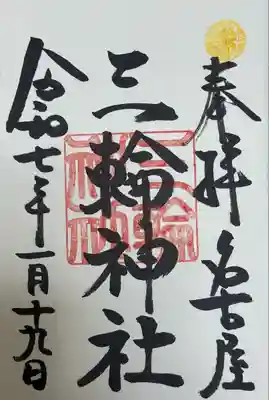 奉拝 名古屋
三輪神社
令和七年一月十九日